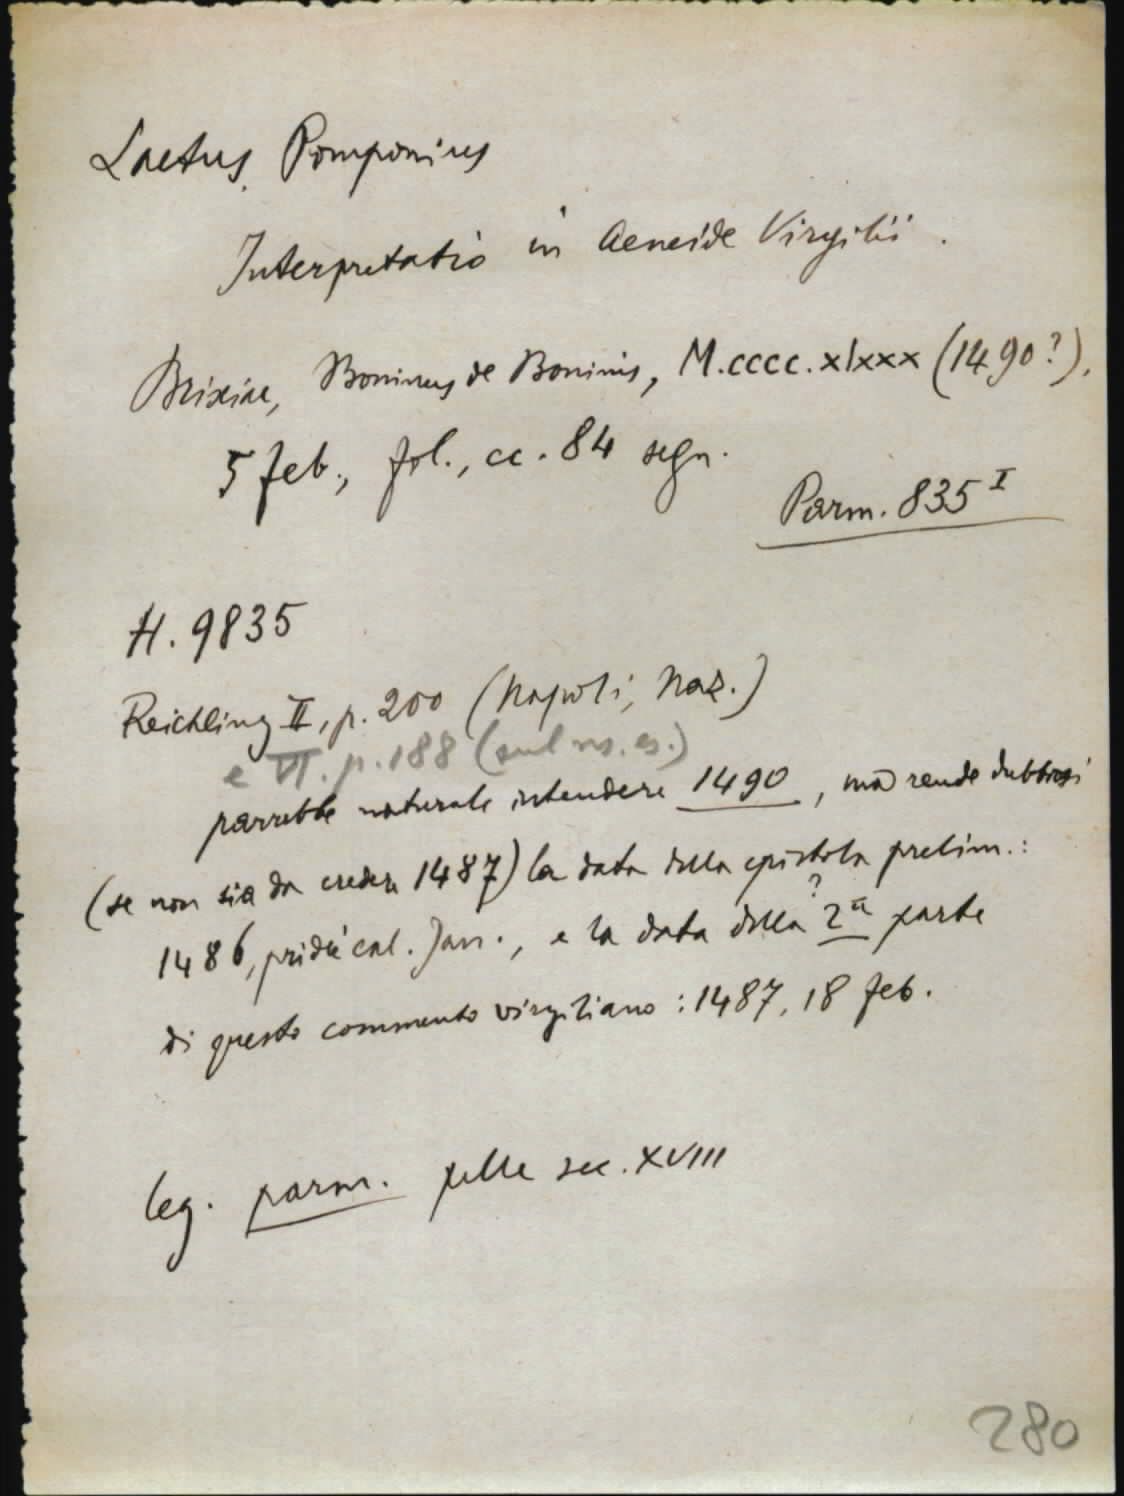 Laetus, Pomponius
Interpretatio in Aeneide Virgilii.
Brixiae, Boninus de Boninis, M.cccc.xlxxx (1490?),
5 feb., fol., cc. 84 segn.
Parm. 835 I
H. 9835
Reichling II, p. 200 (Napoli, Naz.)
e VI. p. 188 (sul ns. es.)
parrebbe naturale intendere 1490, ma rende dubbiosi
(se non sia da creder 1487) la data della epistola prelim.:
1486, pridie cal. Jan., e la data della ? 2a parte
di questo commento virgiliano: 1487, 18 feb.
leg. parm. pelle sec. XVIII
280